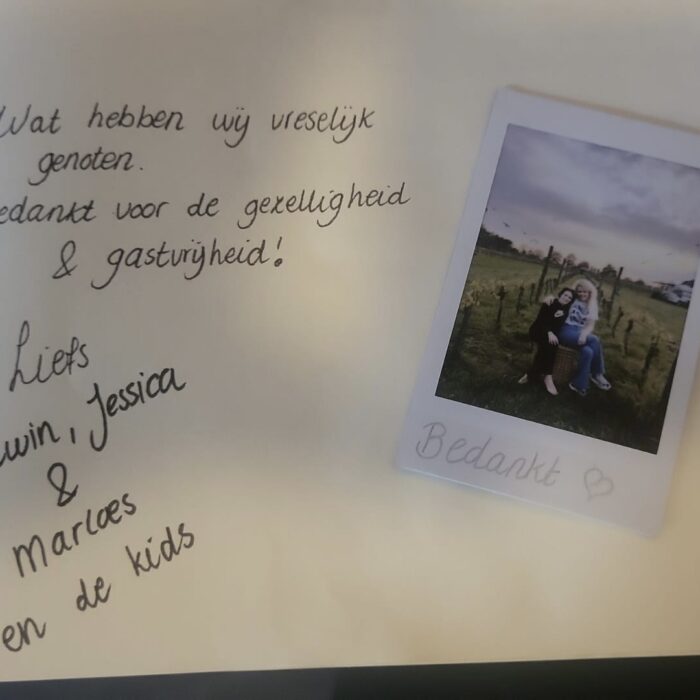 Wat hebben wij vreselijk
genoten.
edankt voor de gezelligheid
& gastvrijheid!
Liefs
win, Jessica
&
Marloes
en de kids
Bedankt